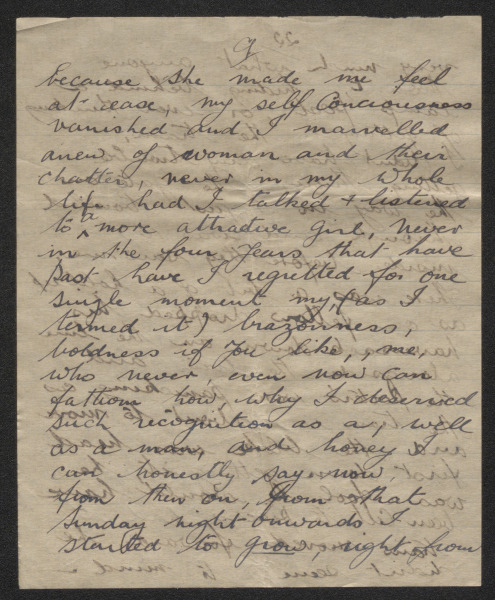 9
because she made me feel
at ease, my self Conciousness
vanished and I marvelled
anew of woman and their
chatter, never in my whole
life had I talked + listened
to a more attractive girl, never
in the four years that have
past have I regretted for one
single moment my, (as I
termed it) brazonness,
boldness if you like, me,
who never, even now can
fathom how, why I deserved
such recognition as a, well
as a man, and honey I
can honestly say now,
from then on, from that
Sunday night onwards I
started to grow, right from